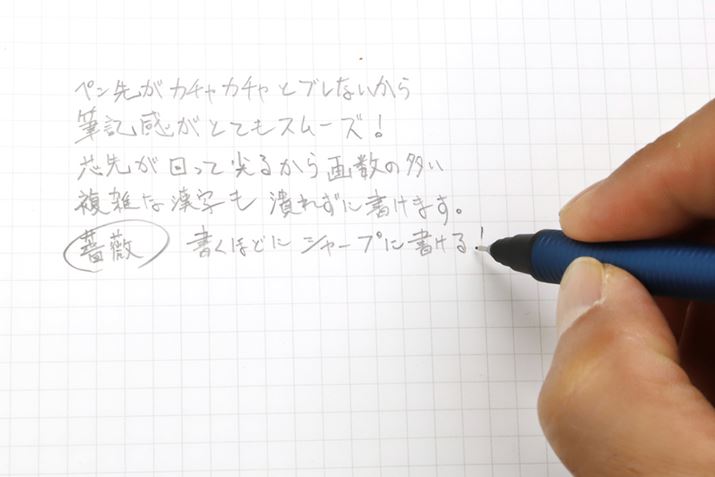 ペン先がカチャカチャとブレないから
筆記感がとてもスムーズ！
芯先が回って尖るから画数の多い
複雑な漢字も潰れずに書けます。
薔薇 書くほどにシャープに書ける！